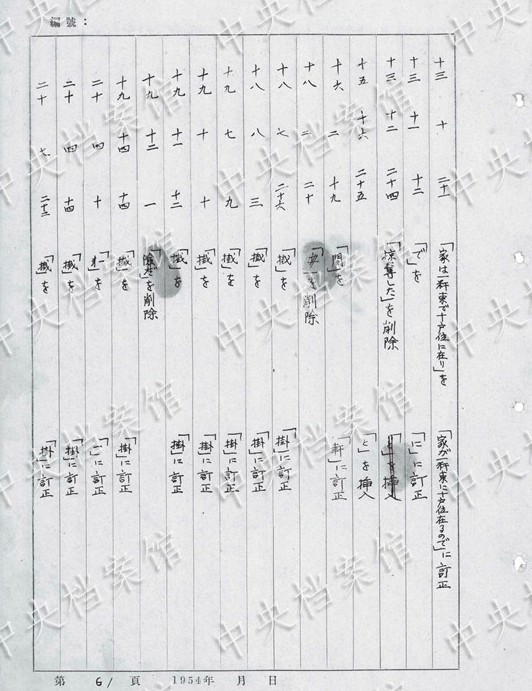 編號：
十三 十 二十一 「家は一軒東で十戸位に在り」を 「家が一軒東に十戸位在るので」に訂正
十三 十一 十二 「で」を 「に」に訂正
十三 十二 二十四 「掠奪した」を削除
十五 十六 二十五 「と」を挿入
十六 二 十九 「間」を 「軒」に訂正
十八 二 二十 を削除
十八 七 二十六 「搣」を 「掛」に訂正
十八 八 三 「搣」を 「掛」に訂正
十九 七 九 「搣」を 「掛」に訂正
十九 十 十 「搣」を 「掛」に訂正
十九 十一 十二 「搣」を 「掛」に訂正
十九 十二 一 を削除
十九 十四 十四 「搣」を 「掛」に訂正
二十 四 十 を に訂正
二十 四 十四 「搣」を 「掛」に訂正
二十 七 二十三 「搣」を 「掛」に訂正
第 61 頁 1954年 月 日
中央档案馆